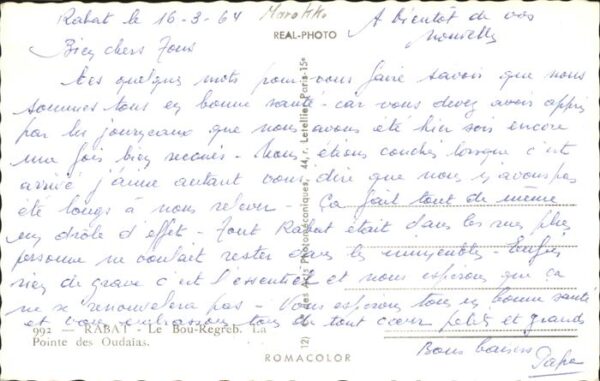 Rabat le 16-3-64 Marokko
A bientôt de vos
nouvelles
REAL-PHOTO
Bien chers Tous
Ces quelques mots pour vous faire savoir que nous
sommes tous en bonne santé - car vous devez avoir appris
par les journeaux que nous avons été hier soir encore
une fois bien secoués - Nous étions couchés lorsque c'est
arrivé j'aime autant vous dire que nous n'avons pas
été longs à nous relever - Ça fait tout de même
un drôle d'effet - Tout Rabat était dans les rues plus
personne ne voulait rester dans les immeubles - Enfin
rien de grave c'est l'essentiel et nous espérons que ça
ne se renouvelera pas - Vous espérons tous en bonne santé
et vous embrassons tous de tout cœur petits et grands
Bons baisers
Papa
992 — RABAT - Le Bou-Regreb. La
Pointe des Oudaïas.
(12) Les Arts Photomécaniques, 44, r. Letellier, Paris-15e
ROMACOLOR